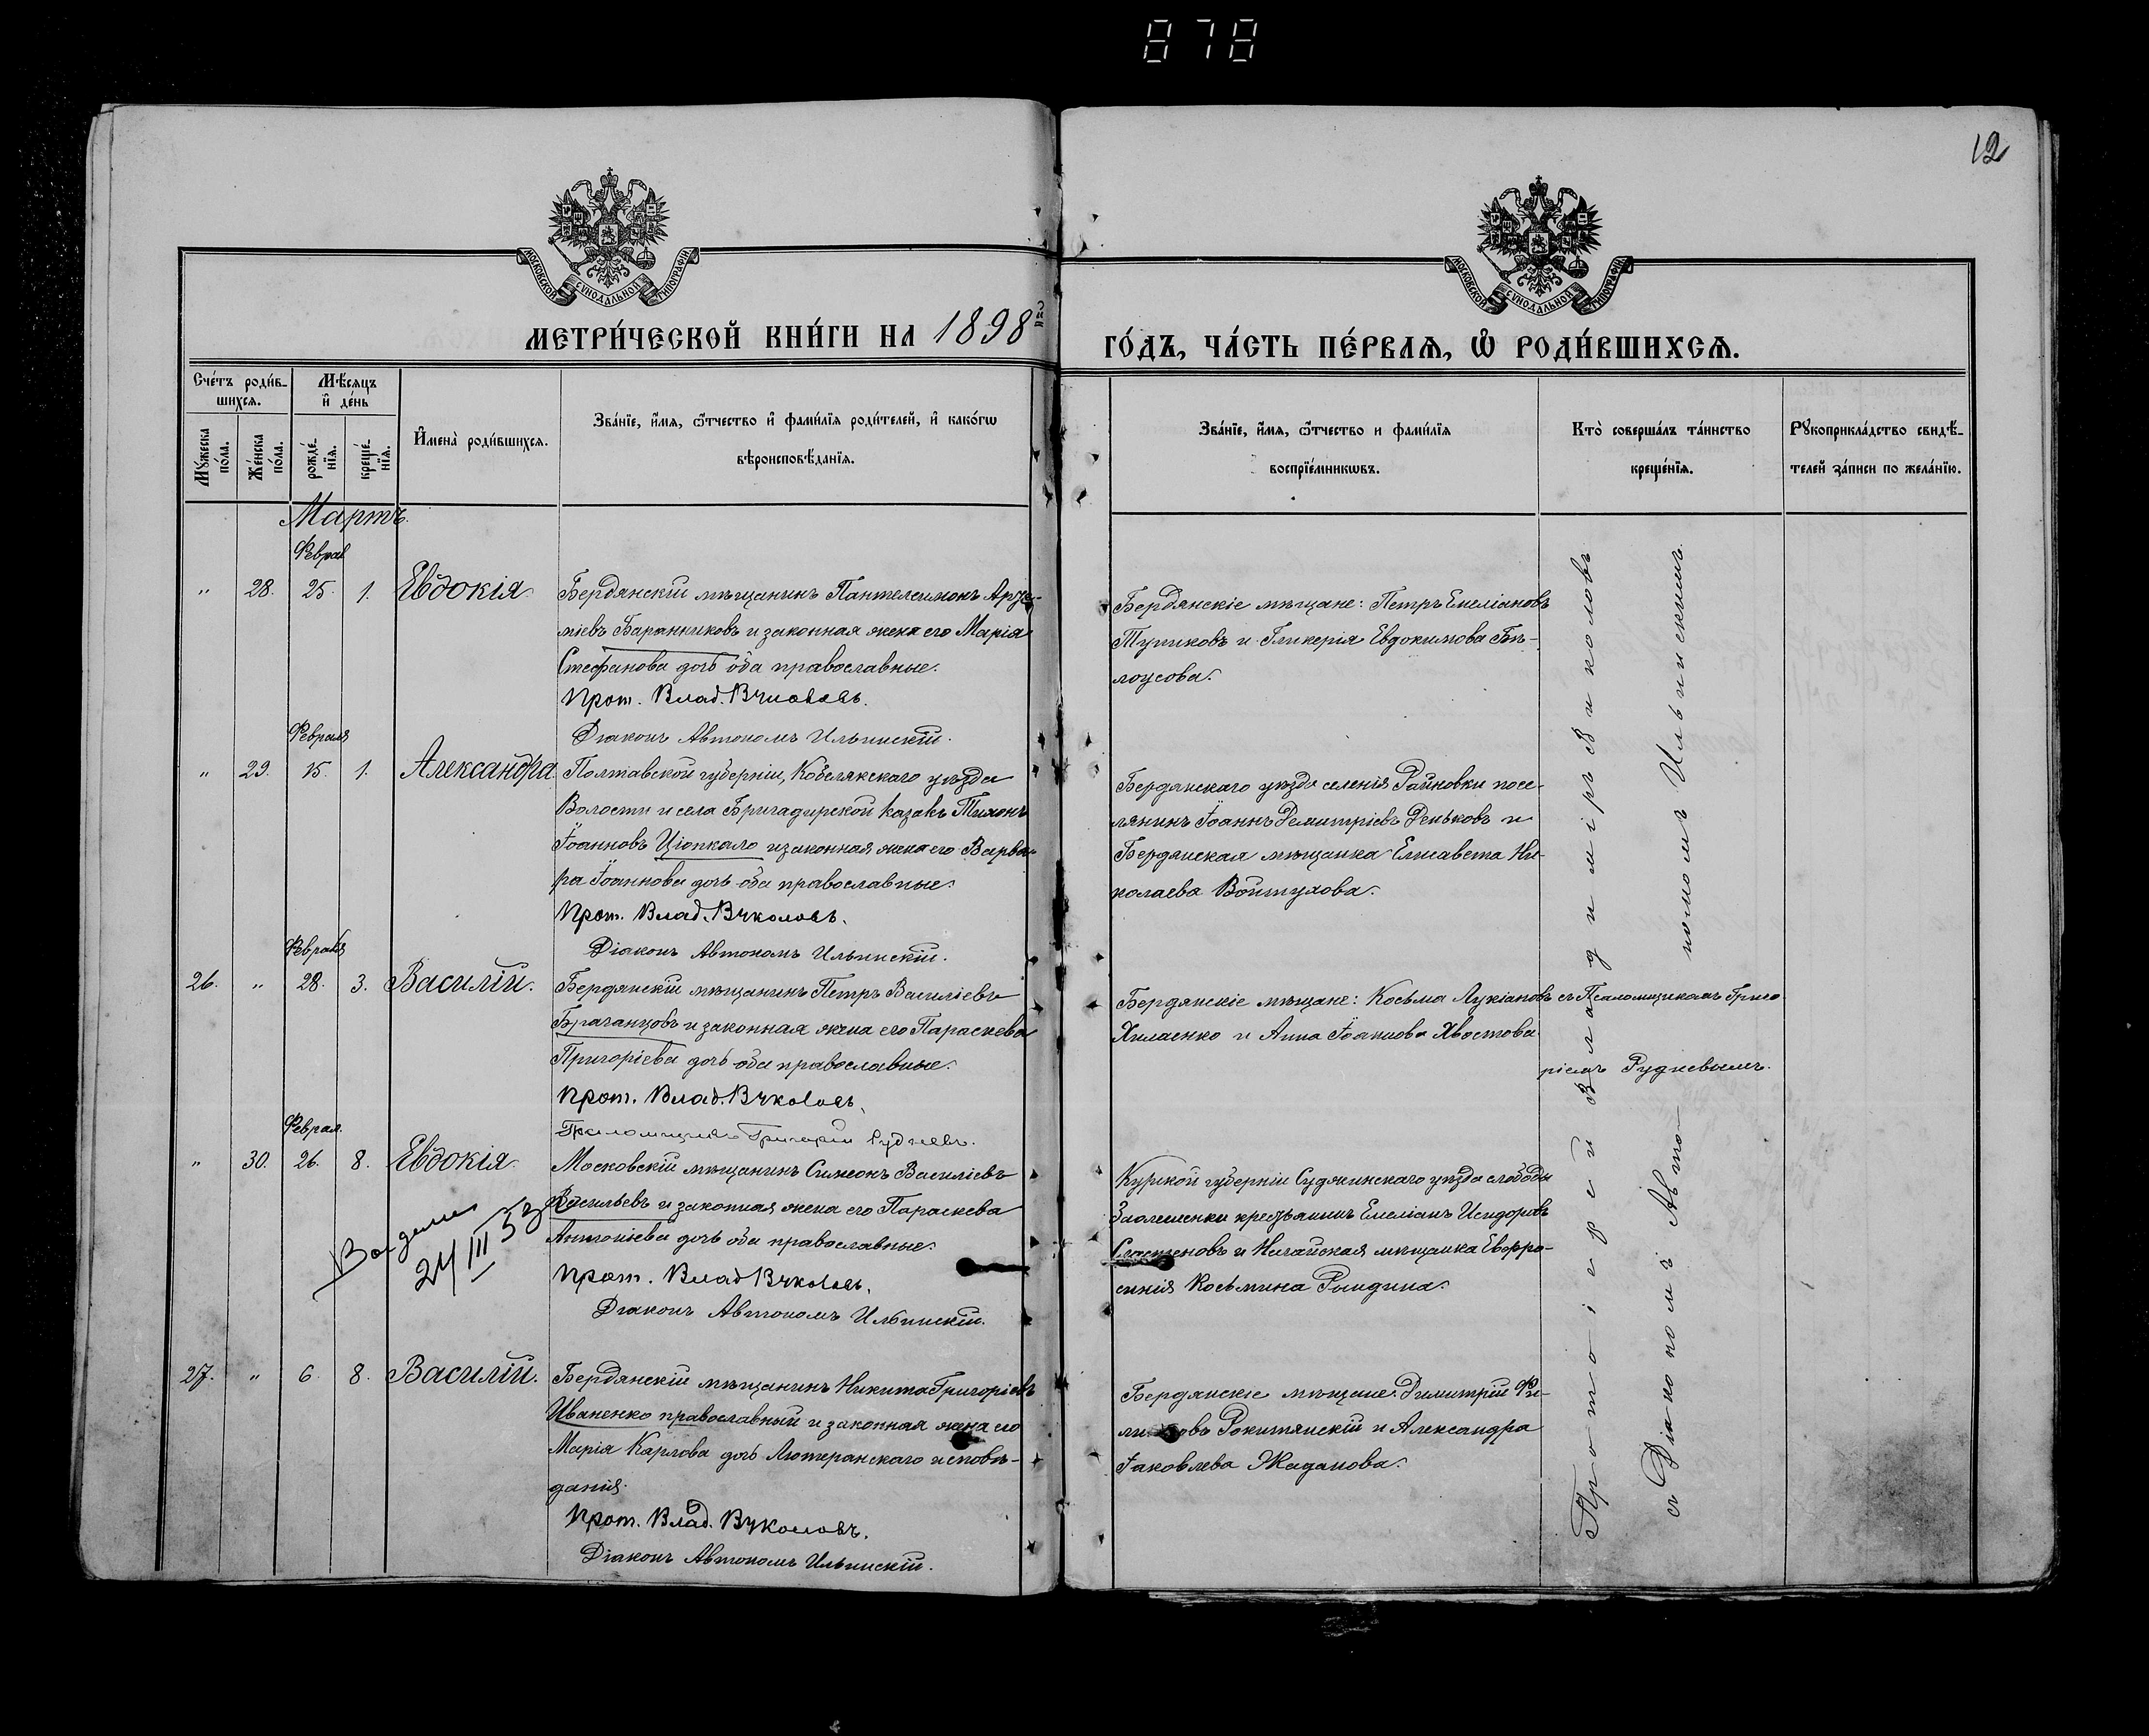 878
12
МОСКОВСКОЙ СѴНОДАЛЬНОЙ ТИПОГРАФІИ
МОСКОВСКОЙ СѴНОДАЛЬНОЙ ТИПОГРАФІИ
МЕТРИ́ЧЕСКОЙ КНИ́ГИ НА 1898й
ГО́ДЪ, ЧА́СТЬ ПЕ́РВАѦ, Ѡ҆ РОДИ́ВШИХСѦ.
Сче́тъ роди́в-
шихсѧ.
Мѣ́сяцъ
и҆ де́нь
Мꙋ́жеска по́ла.
Же́нска по́ла.
рожде́нїѧ.
креще́нїѧ.
И҆мена̀ роди́вшихсѧ.
Зва́нїе, и҆́мѧ, ѻ҆́тчество и҆ фами́лїѧ роди́телей, и҆ како́гѡ
вѣроисповѣ́данїѧ.
Зва́нїе, и҆́мѧ, ѻ҆́тчество и фами́лїѧ
воспрїе́мникѡвъ.
Кто̀ соверша́лъ та́инство
креще́нїѧ.
Рꙋкоприкла́дство свидѣ́-
телей за́писи по жела́нїю.
Мартъ.
Феврал
" 28. 25. 1. Евдокія.
Бердянскій мѣщанинъ Пантелеимонъ Арте-
міевъ Баранниковъ и законная жена его Марія
Стефанова дочь оба православные.
Прот. Влад. Вуколовъ.
Діаконъ Автономъ Ильинскій.
Бердянскіе мѣщане: Петръ Емеліановъ
Тупиковъ и Гликерія Евдокимова Бѣ-
лоусова.
Февраля
" 29. 15. 1. Александра
Полтавской губерніи, Кобелякскаго уѣзда
Волости и села Бригадирской казакъ Тихонъ
Іоанновъ Цюпкало и законная жена его Варва-
ра Іоаннова дочь оба православные.
Прот. Влад. Вуколовъ.
Діаконъ Автономъ Ильинскій.
Бердянскаго уѣзда селенія Райновки посе-
лянинъ Іоаннъ Демитріевъ Деньковъ и
Бердянская мѣщанка Елисавета Ни-
колаева Войтулова.
Февраля
26. " 28. 3. Василій.
Бердянскій мѣщанинъ Петръ Василіевъ
Браганцовъ и законная жена его Параскева
Григоріева дочь оба православные.
Прот. Влад. Вуколовъ.
Псаломщикъ Григорій Рудневъ.
Бердянскіе мѣщане: Косьма Лукіановъ
Хиласнко и Анна Іоаннова Хвостова
съ Псаломщикомъ Григо
ріемъ Рудневымъ.
Феврал.
" 30. 26. 8. Евдокія.
24/III
Московскій мѣщанинъ Симеонъ Василіевъ
Васильевъ и законная жена его Параскева
Антоніева дочь оба православные.
Прот. Влад Вуколовъ.
Діаконъ Автономъ Ильинскій.
Курской губерніи Суджинскаго уѣзда слободы
Заолешенки крестьянинъ Емеліанъ Исидоровъ
и мѣщанка Евфро-
синія Косьмина Рындина.
27. " 6. 8. Василій.
Бердянскій мѣщанинъ Никита Григоріевъ
Иваненко православный и законная жена его
Марія Карлова дочь Лютеранскаго исповѣ-
данія.
Прот. Влад. Вуколовъ.
Діаконъ Автономъ Ильинскій.
Бердянскіе мѣщане: Димитрій Фи-
Рокитянскій и Александра
Іаковлева Жаданова.
Протоіерей Владиміръ Вуколовъ
съ Діакономъ Авто-
номомъ Ильинскимъ.